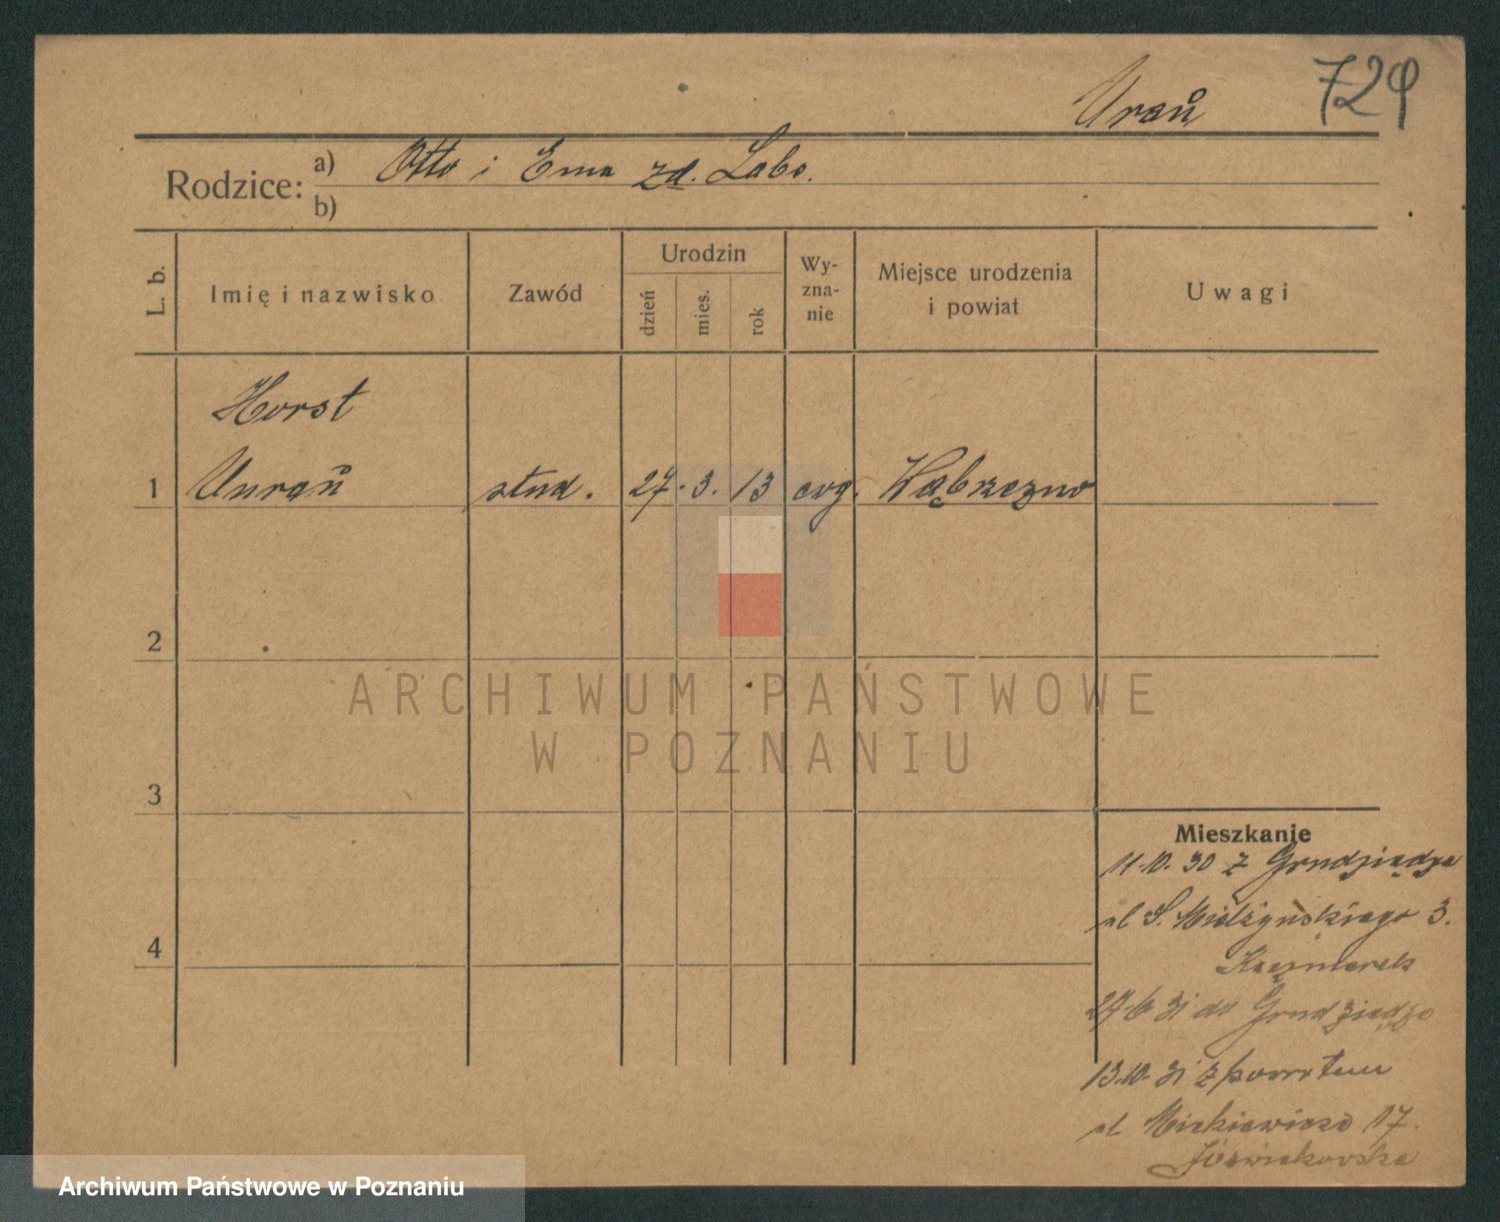 729
Urau
Rodzice: a) Otto i Ema zd. Labo.
b)
L. b. Imię i nazwisko Zawód Urodzin dzień mies. rok Wyznanie Miejsce urodzenia i powiat Uwagi
Horst
1 Unrau stud. 27. 3. 13 evg. Wąbrzezno
2
ARCHIWUM PAŃSTWOWE
W POZNANIU
3
Mieszkanie
11.10.30 z Grudziądza
ul S. Mielżyńskiego 3.
4
Kaczmarek
27.6 31 do Grudziądza
13.10.31 z powrotem
ul Mickiewicza 17.
Archiwum Państwowe w Poznaniu